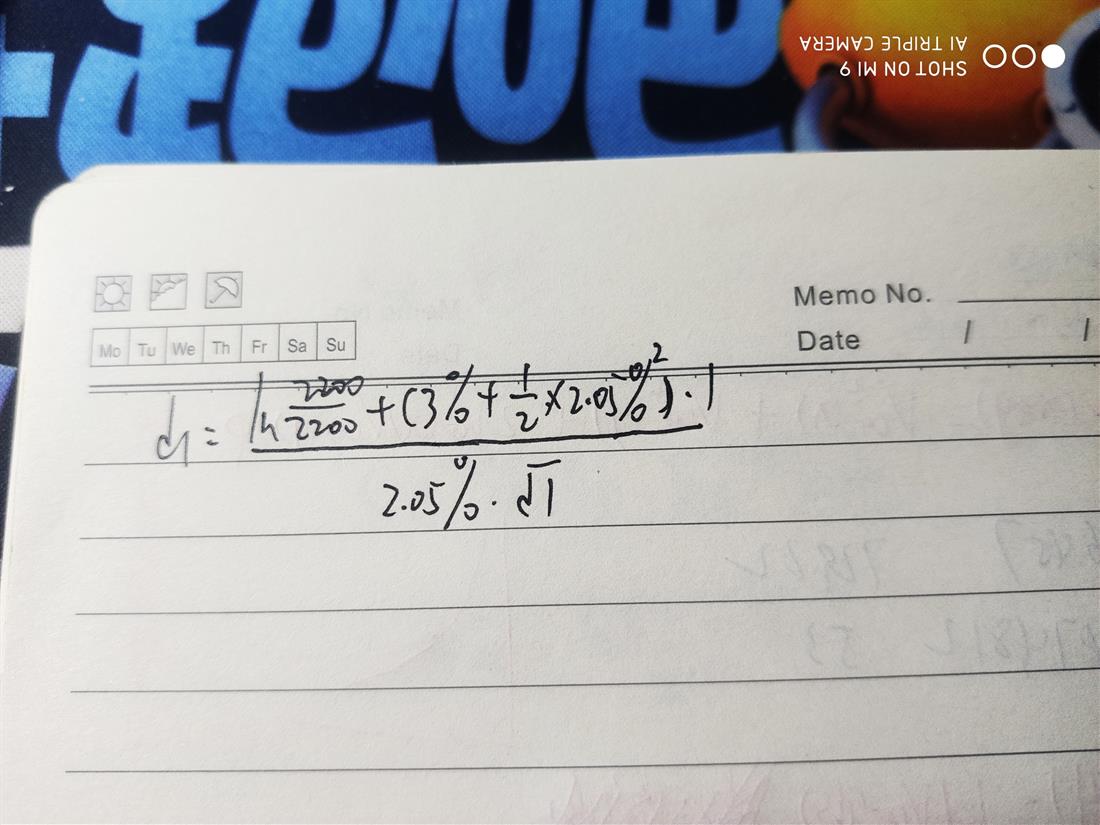 SHOT ON MI 9
AI TRIPLE CAMERA
Memo No.
Mo Tu We Th Fr Sa Su
Date / /
d₁ = \frac{\ln \frac{2200}{2200} + (3% + \frac{1}{2} × 2.05%²) · 1}{2.05% · √1}